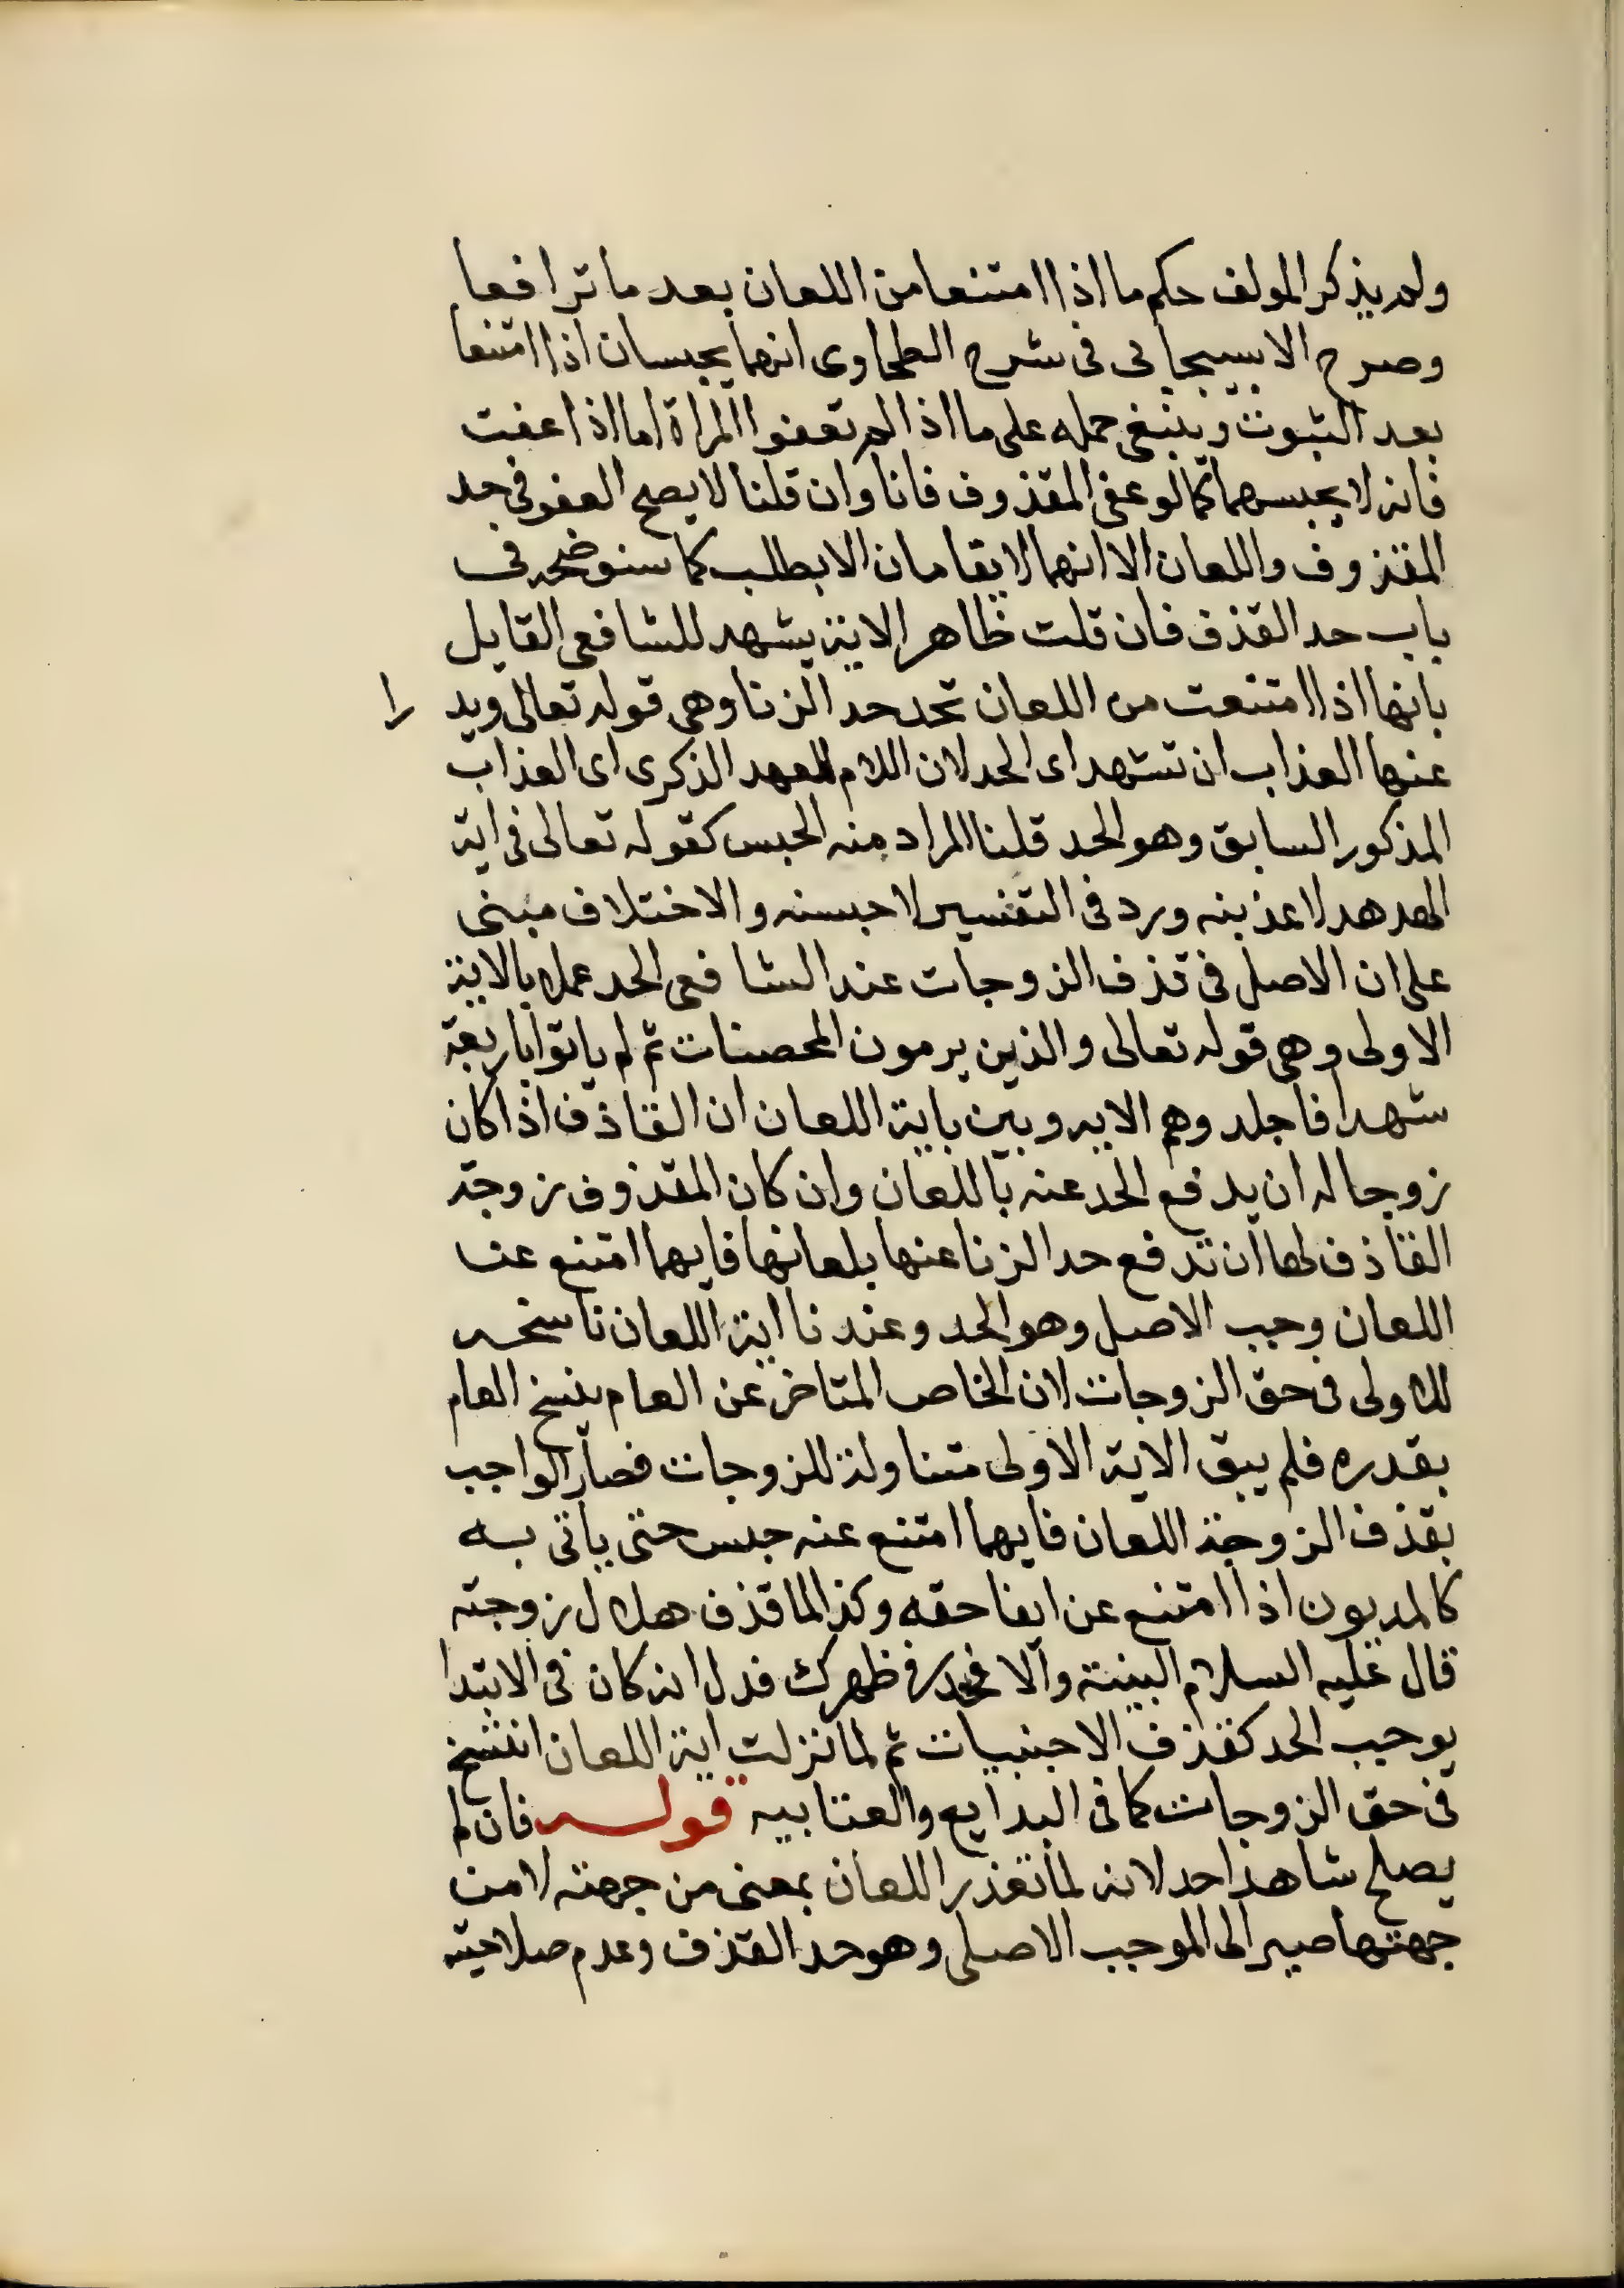 ولم يذكر المولف حكم ما اذا امتنعا من اللعان بعد ما ترافعا
وصرح الاسبيجابى فى شرح الطحاوى انهما يحبسان اذا امتنعا
بعد الثبوت وينبغى حمله على ما اذا لم تعفوا المراة اما اذا عفت
فانه لا يحبسهما كما لو عفى المقذوف فانا وان قلنا لا يصح العفو فى حد
المقذوف واللعان الا انهما لا يقامان الا بطلب كما سنوضحه فى
باب حد القذف فان قلت ظاهر الاية يشهد للشافعى القايل
بانها اذا امتنعت من اللعان تحد حد الزنا وهى قوله تعالى ويد را
عنها العذاب ان تشهد اى الحد لان اللام للعهد الذكرى اى العذاب
المذكور السابق وهو الحد قلنا المراد منه الحبس كقوله تعالى فى اية
الهدهد لاعذبنه ورد فى التفسير لاحبسنه والاختلاف مبنى
على ان الاصل فى قذف الزوجات عند الشافعى الحد عملا بالاية
الاولى وهى قوله تعالى والذين يرمون المحصنات ثم لم ياتوا باربعة
شهدا فاجلدوهم الايه وبين باية اللعان ان القاذف اذا كان
زوجا له ان يدفع الحد عنه باللعان وان كان المقذوف زوجة
القاذف لها ان تدفع حد الزنا عنها بلعانها فايهما امتنع عن
اللعان وجب الاصل وهو الحد وعندنا اية اللعان ناسخه
للاولى فى حق الزوجات لان الخاص المتاخر عن العام ينسخ العام
بقدره فلم يبق الاية الاولى متناولة للزوجات فصار الواجب
بقذف الزوجة اللعان فايهما امتنع عنه حبس حتى ياتى به
كالمديون اذا امتنع عن ايفا حقه وكذا لما قذف هلال زوجته
قال عليه السلام البينة والا فحد فى ظهرك فدل انه كان فى الابتدا
يوجب الحد كقذف الاجنبيات ثم لما نزلت اية اللعان انتسخ
فى حق الزوجات كما فى البدايع والعتابيه قوله فان لم
يصلح شاهدا حد لانه لما تعذر اللعان بمعنى من جهته لا من
جهتها صير الى الموجب الاصلى وهو حد القذف وعدم صلاحيته